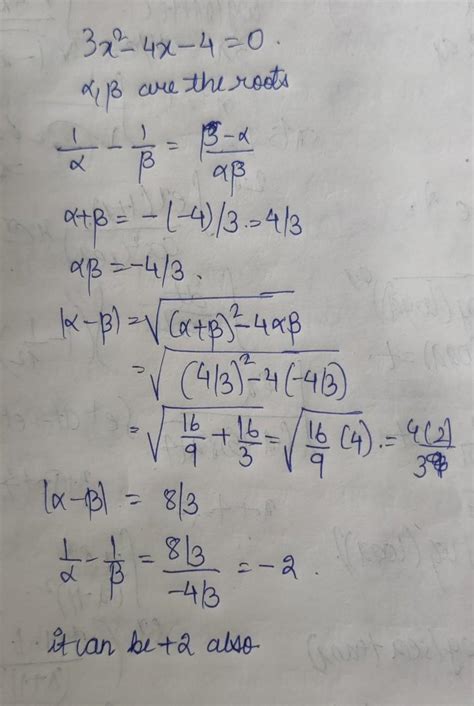 3x²-4x-4=0.
α, β are the roots
1/α - 1/β = β-α/αβ
α+β = -(-4)/3 = 4/3
αβ = -4/3.
|α-β| = √(α+β)²-4αβ
= √(4/3)²-4(-4/3)
= √16/9 + 16/3 = √16/9 (4) . = 4(2)/3
|α-β| = 8/3
1/α - 1/β = 8/3/-4/3 = -2 .
it can be +2 also